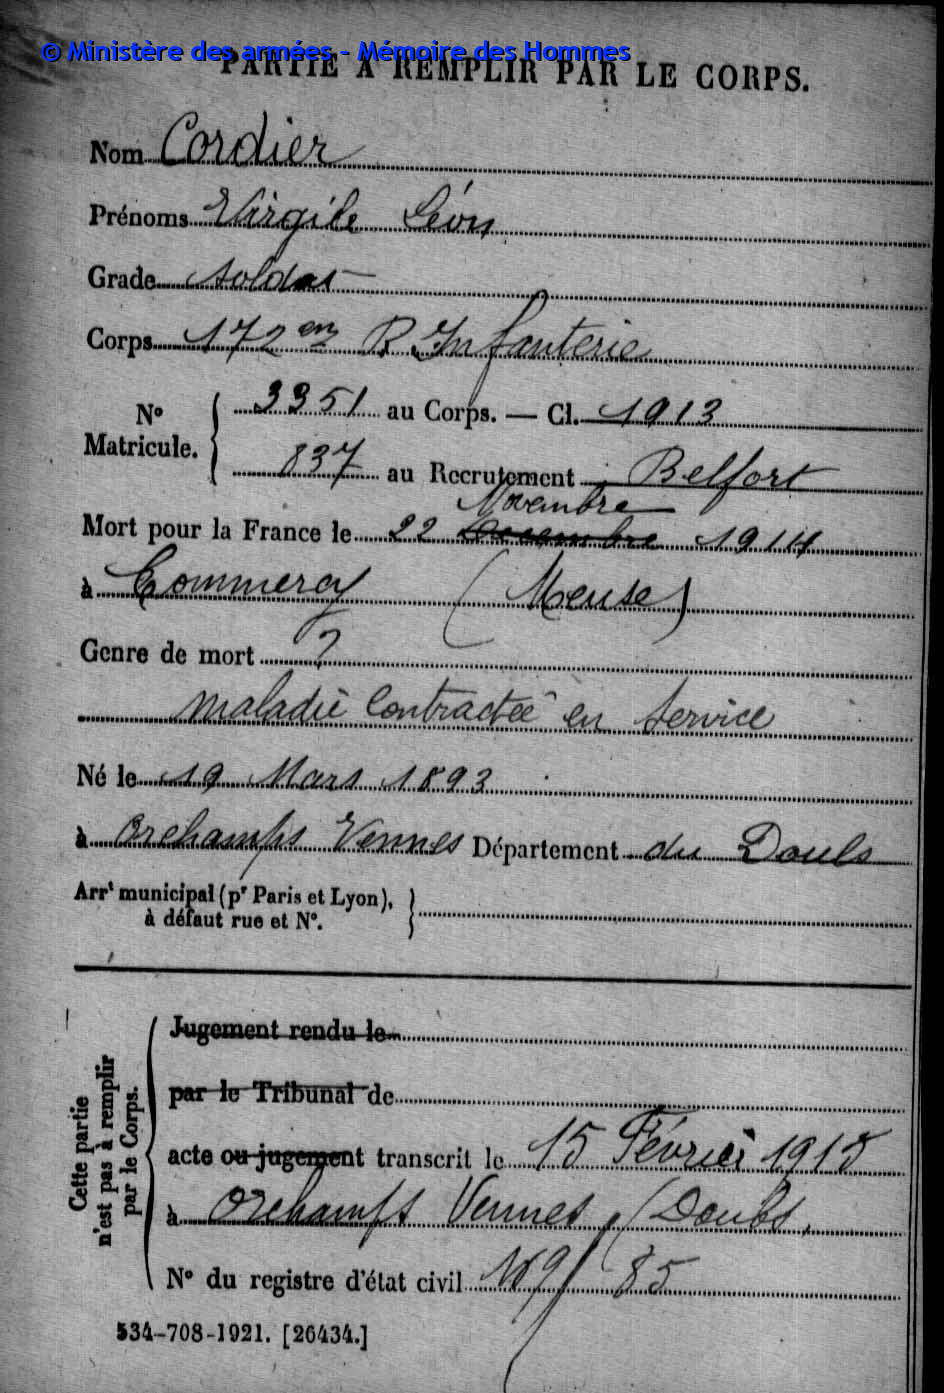 © Ministère des armées - Mémoire des Hommes
PARTIE À REMPLIR PAR LE CORPS.
Nom Cordier
Prénoms Virgile Léon
Grade soldat
Corps 172em R. Infanterie
No Matricule. { 3351 au Corps. — Cl. 1913
837 au Recrutement Belfort
Novembre
Mort pour la France le 22 Decembre 1914
à Commercy (Meuse)
Genre de mort ?
maladie contractée en service
Né le 19 Mars 1893
à Orchamps Vennes Département du Doubs
Arrt municipal (pr Paris et Lyon),
à défaut rue et No. }
Cette partie
n'est pas à remplir
par le Corps.
Jugement rendu le
par le Tribunal de
acte ou jugement transcrit le 15 Février 1915
à Orchamps Vennes (Doubs,
No du registre d'état civil 85
534-708-1921. [26434.]